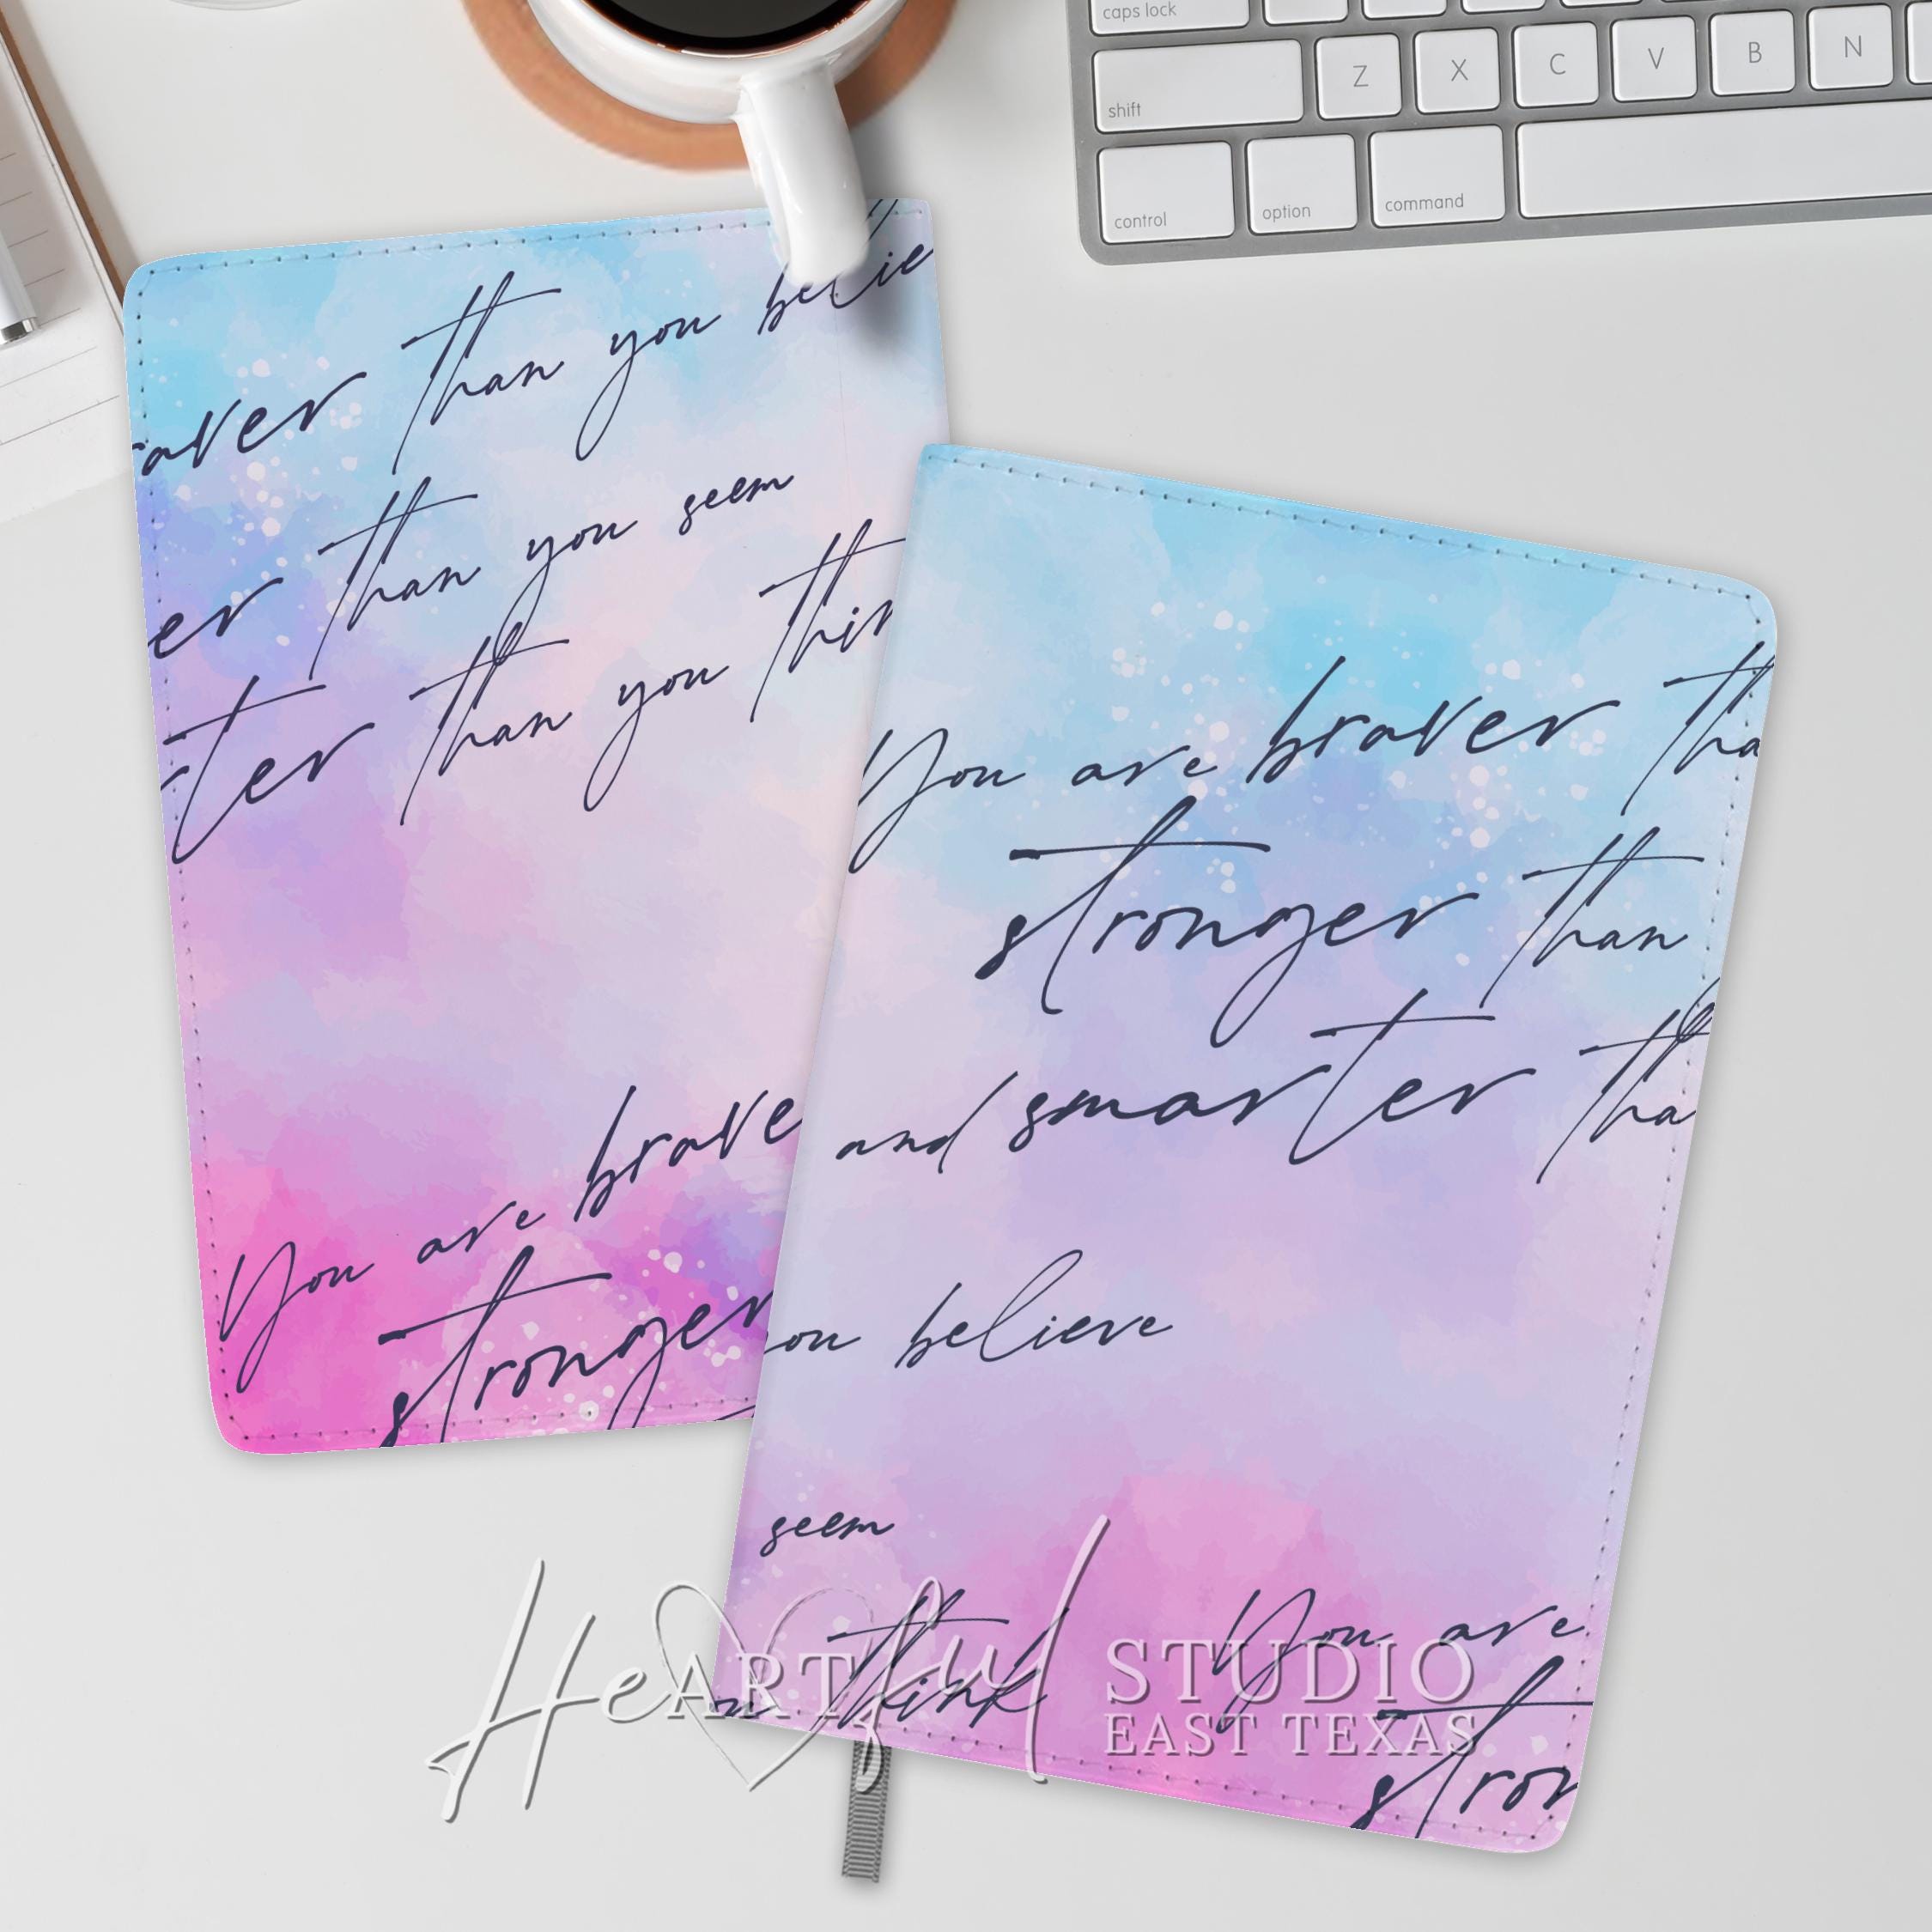 caps lock
Z X C V B N
shift
control option command
raver than you belie
er than you seem
ter than you thin
You are brave
stronger
You are braver tha
stronger than
and smarter tha
ou believe
seem
think You are
stron
HeARTful STUDIO
EAST TEXAS